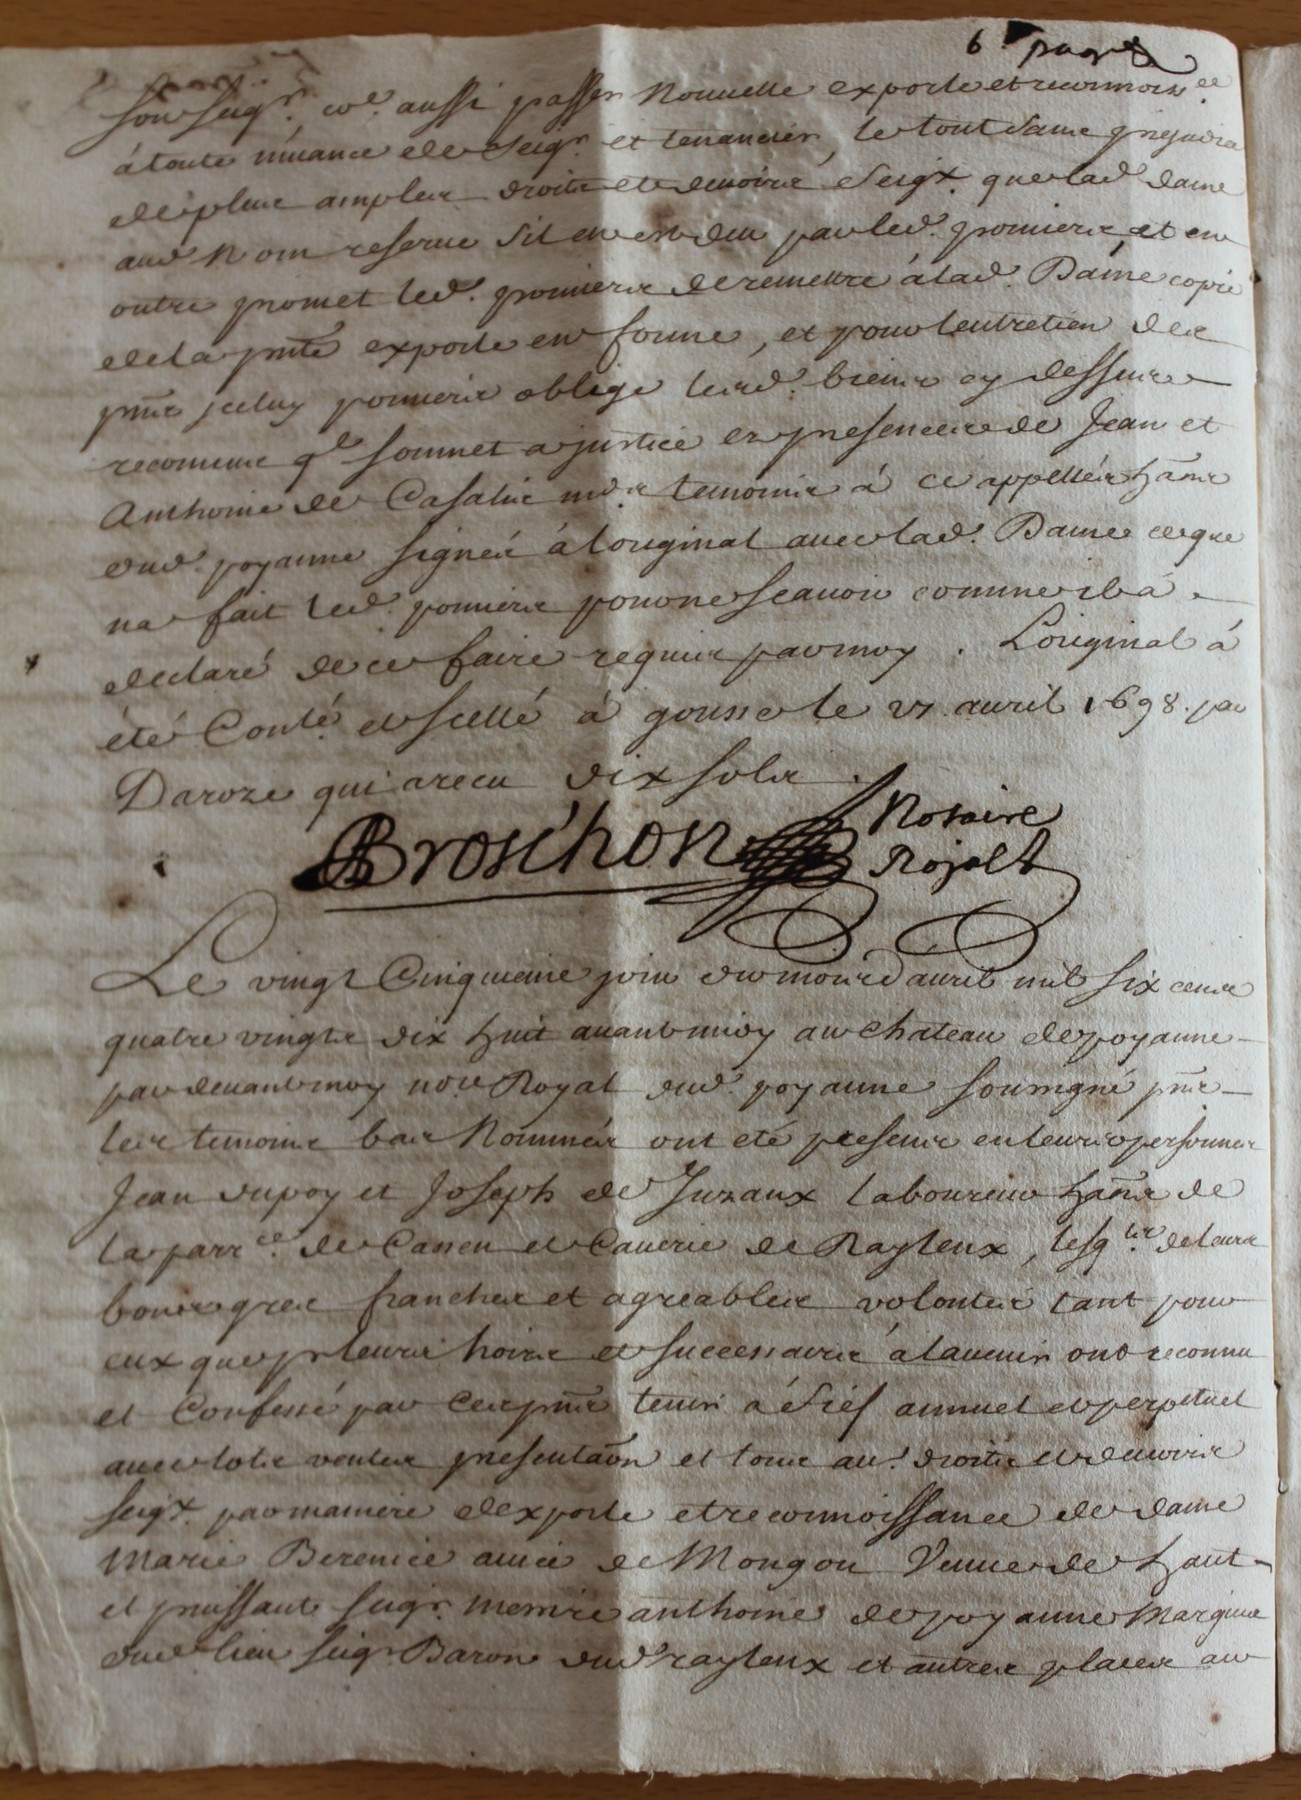 6e page
son seigr. co.e aussi passer nouuelle exporle et reconnoiss.ce
à toute muance de seigr. et tenancier, le tout sans prejudice
de plus amples droits et deuoirs Seigx. que lad. dame
aud. nom reserue s'il en est deu par led. pomiers et en
outre promet led. pomiers de remettre à lad. Dame copie
de la pnte exporle en forme, et pour l'entretien des
pntes iceluy pomiers oblige lesd. biens cy dessus
reconnus ql soumet a justice es presences de Jean et
Anthoine de Casalis md.s temoins à ce appellés hans
dud. poyanne signés à l'original auec lad. Dame ce que
na fait led. pomiers pour ne scauoir comme il a
declaré de ce faire requis par moy. L'original à
été Conlé. et scellé à gousse le 27 auril 1698. par
Daroze qui a receu dix sols.
Broschon Notaire
Royal
Le vingt Cinquieme jour du mois d'auril mil six cens
quatre vingts dix huit auant midy au chateau de poyanne
par deuant moy nore. Royal dud. poyanne soussigné pns
les temoins bas nommés ont eté presens en leurs personnes
Jean dupoy et Joseph de Juzaux laboureurs hans de
la parr.ce de Cassen et Cauerie de Rayleux, lesq.ls de leurs
bons grés franches et agreables volontés tant pour
eux que pr leurs hoirs et successeurs à l'auenir ont reconnu
et Confessé par ces pntes tenir à fief annuel et perpetuel
auec lots ventes presentaon et tous au.s droits et deuoirs
seigx. par maniere d'exporle et reconnoissance de dame
Marie Berenice auice de Mongon Veuue de haut
et puissant seigr. messire anthoine de poyanne Marquis
dud. lieu seigr Baron dud. rayleux et autres places au